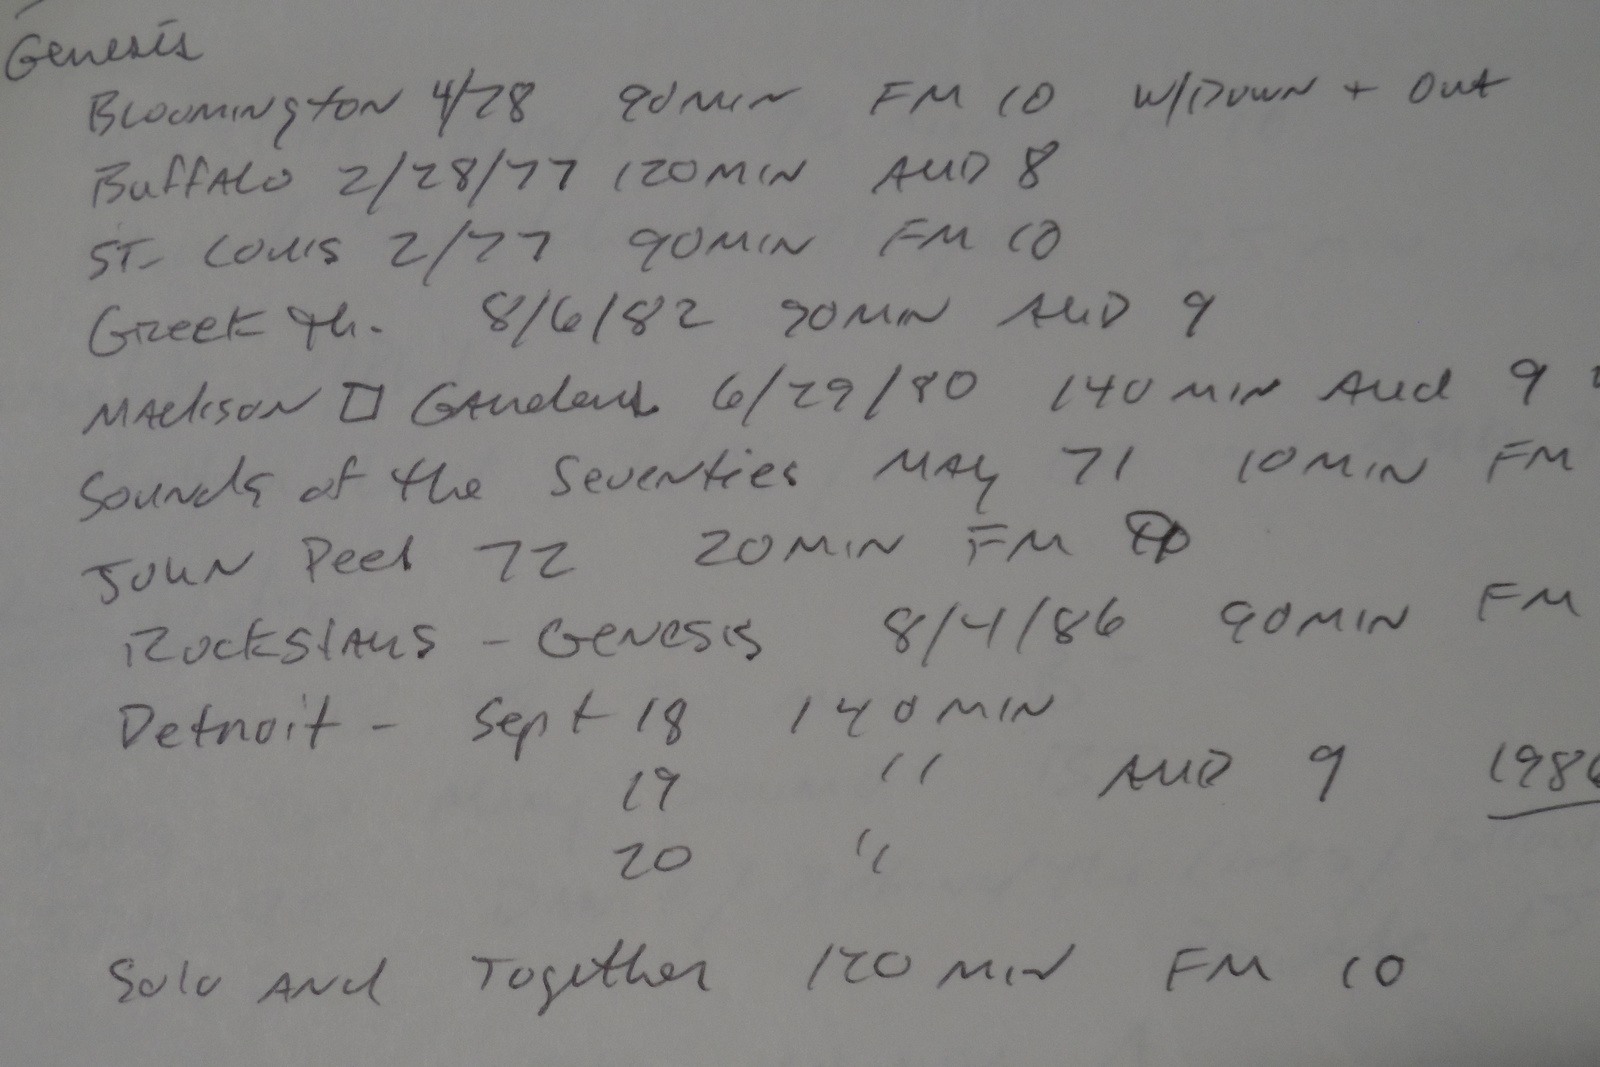 Genesis
Bloomington 4/78 90 MIN FM 10 W/Down + Out
Buffalo 2/28/77 120 MIN AUD 8
ST. Louis 2/77 90 MIN FM 10
Greek th. 8/6/82 90 MIN AUD 9
Madison □ Gardens 6/29/80 140 MIN Aud 9
Sounds of the Seventies MAY 71 10 MIN FM
JOHN Peel 72 20 MIN FM
Rockstars - Genesis 8/4/86 90 MIN FM
Detroit - Sept 18 140 MIN
19 " AUD 9 1986
20 "
Solo And Together 120 MIN FM 10